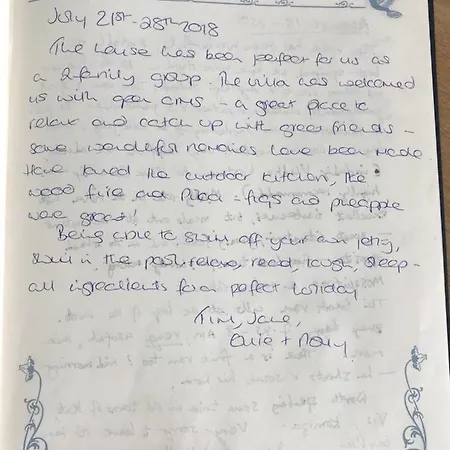 July 21st - 28th 2018
The house has been perfect for us as
a 2 family group. The villa has welcomed
us with open arms - a great place to
relax and catch up with great friends -
some wonderful memories have been made
Have loved the outdoor kitchen, the
wood fire and pizza - figs and pineapple
were great!
Being able to swim off your own jetty,
swim in the pool, relax, read, laugh, sleep -
all ingredients for a perfect holiday
Tim, Jane,
Ellie +